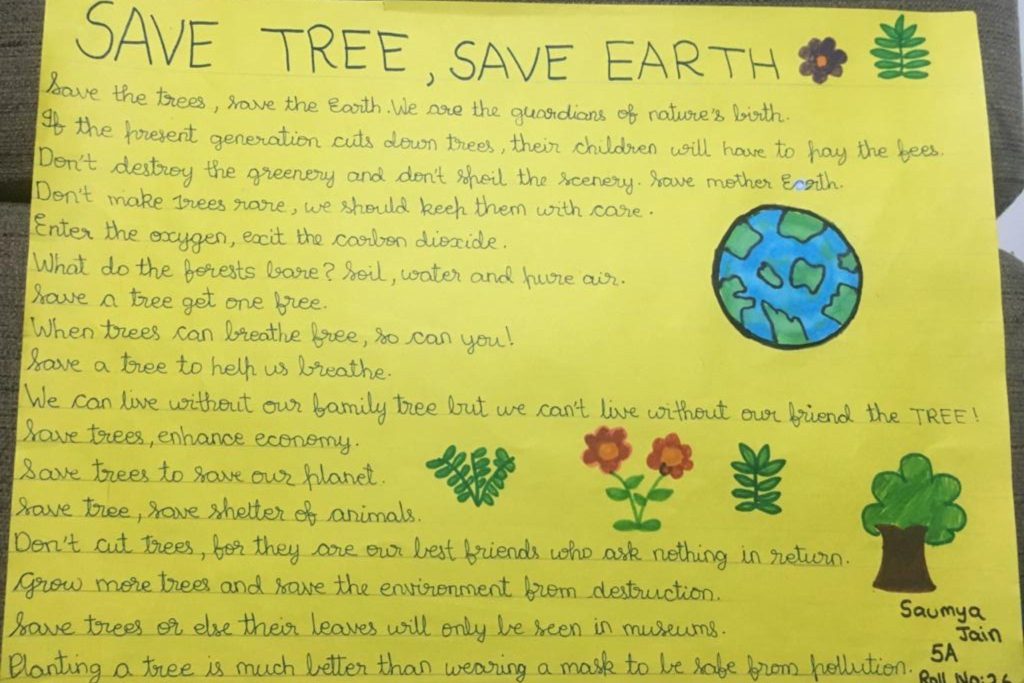 SAVE TREE, SAVE EARTH
Save the trees, save the Earth. We are the guardians of nature's birth.
If the present generation cuts down trees, their children will have to pay the fees.
Don't destroy the greenery and don't spoil the scenery. Save mother Earth.
Don't make trees rare, we should keep them with care.
Enter the oxygen, exit the carbon dioxide.
What do the forests bare? Soil, water and pure air.
Save a tree get one free.
When trees can breathe free, so can you!
Save a tree to help us breathe.
We can live without our family tree but we can't live without our friend the TREE!
Save trees, enhance economy.
Save trees to save our planet.
Save tree, save shelter of animals.
Don't cut trees, for they are our best friends who ask nothing in return.
Grow more trees and save the environment from destruction.
Save trees or else their leaves will only be seen in museums.
Planting a tree is much better than wearing a mask to be safe from pollution.
Saumya
Jain
5A
Roll No:26